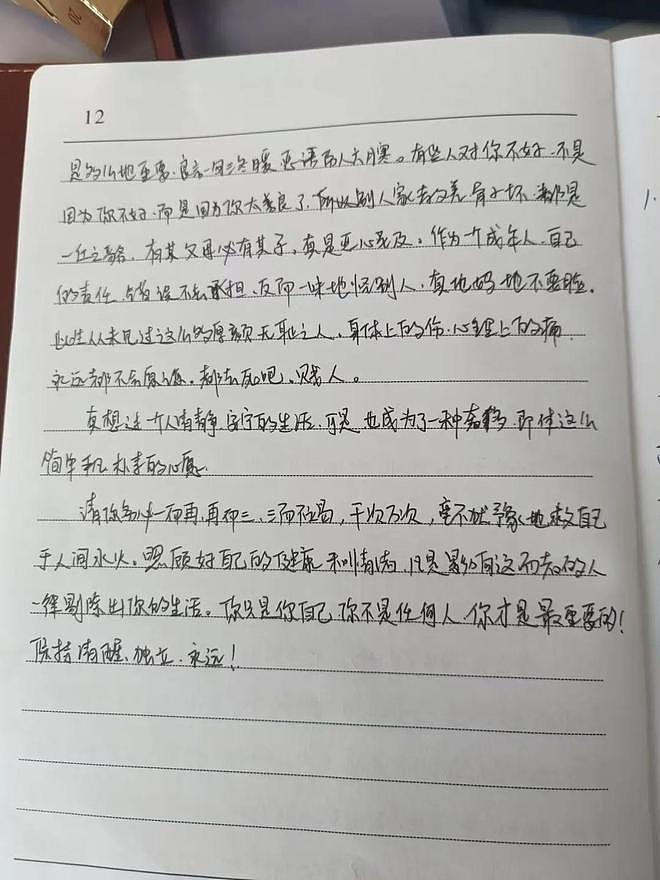 12
是多么地重要.良言一句三冬暖 恶语伤人六月寒。有些人对你不好.不是
因为你不好.而是因为你太善良了.所以别人家教差 骨子坏.都是
一丘之貉.有其父母必有其子,真是恶心至及。作为一个成年人.自己
的责任.错误不去承担.反而一味地怪别人,真他妈地不要脸.
此生从未见过这么的厚颜无耻之人.身体上的伤.心理上的痛.
永远都不会原谅.都去死吧.贱人。
真想过一个人清静.安宁的生活.可是 也成为了一种奢移.即使这么
简单和 朴素的心愿.
请你务必一而再,再而三、三而不竭,千次万次,毫不犹豫地救自己
于人间水火。照顾好自己的健康和情绪.但是累份自这而教的人
一律剔除出你的生活。你只是你自己 你不是任何人.你才是最重要的!
保持清醒.独立.永远!